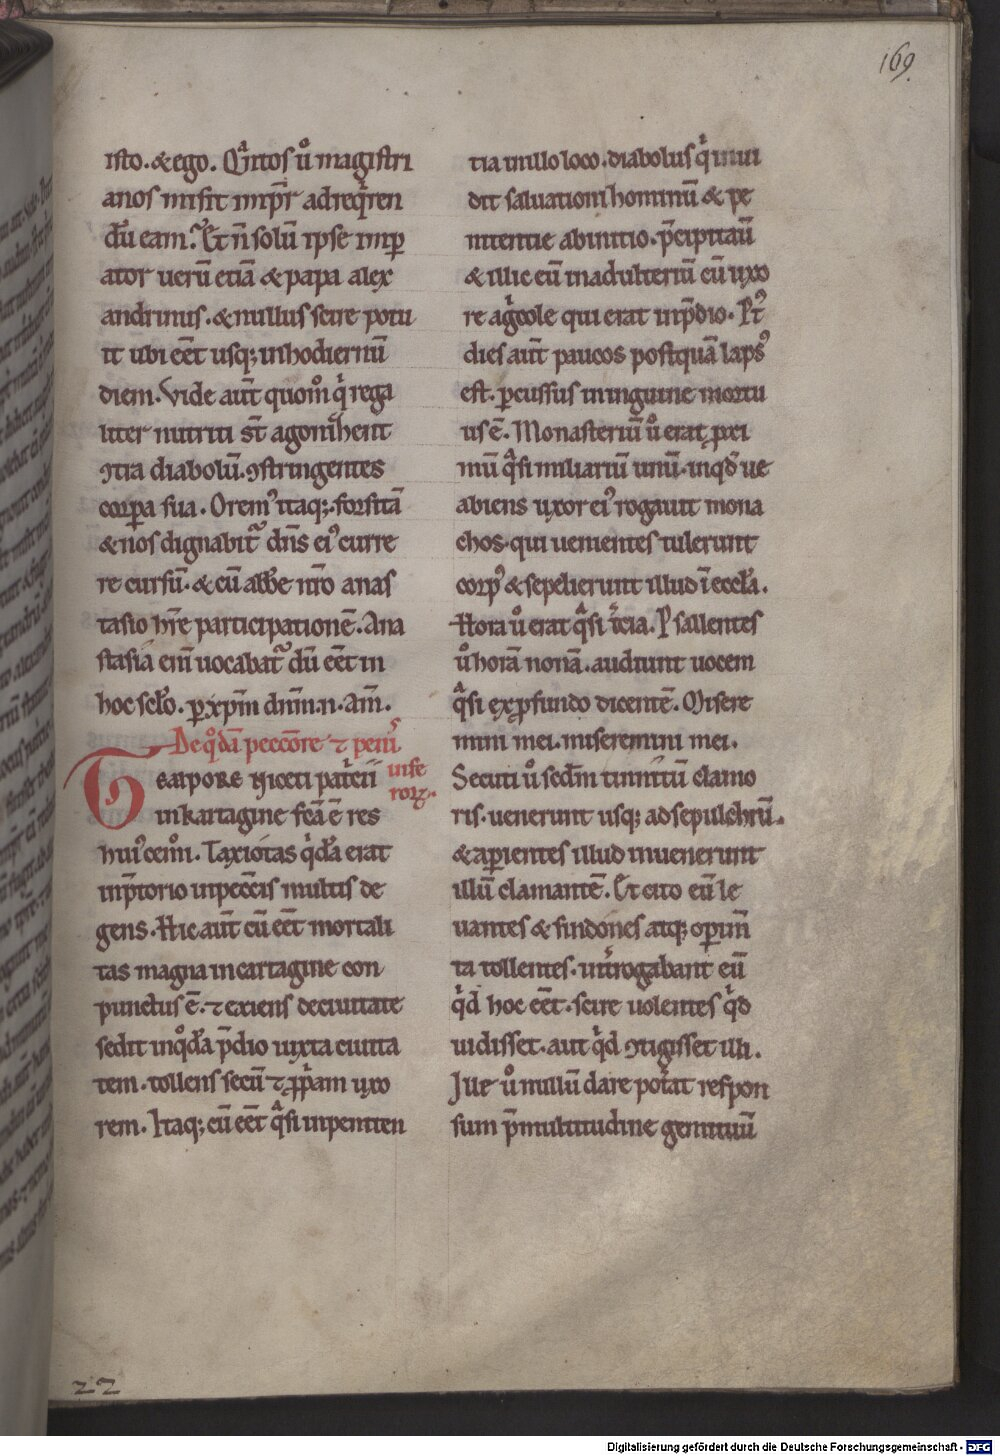 169.
isto. & ego. Qͣntos ů magistri
anos misit imp̄r ad reqͥren
dū eam. Et n̄ solū ipse imp̱
ator uerū etiā & papa alex
andrinus. & nullus scire potu
it ubi eēt usq; in hodiernū
diem. Vide aūt quom̊ qͥ rega
liter nutriti st̄ agoniꝫhent
ꝯtra diabolū. ꝯstringentes
corp̱a sua. Oremꝰ itaq;. forsitā
& nos dignabit᷑ dn̄s eiꝰ curre
re cursū. & cū abb̄e nr̄o anas
tasio hr̄e participationē. Ana
stasia eni͞ uocabat᷑ dū eēt in
hoc sc̄lo. p̱ xp̄m dnm̄.n. am̄.
De qͦdā peccōre ⁊ penit᷑
uise
rorꝫ.
Tempore Niceti pat͛cii
in kartagine fc̄ā ē res
huiꝰcem̊i. Taxiotas qͥdā erat
in p̄torio in pecc̄is multis de
gens. Hic aūt cū eēt mortali
tas magna in cartagine con
punctus ē. ⁊ exiens de ciuitate
sedit in qͦdā p̄dio iuxta ciuita
tem. tollens secū ⁊ ꝓp̄am uxo
rem. Itaq; cū eēt qͣsi in peniten
tia in illo loco. diabolus qͥ inui
dit saluationi hominū & pe
nitentie ab initio. p̄cipitauı̄
& illic eū in adulteriū cū uxo
re agͥcole qui erat in p̄dio. Pt᷒
dies aūt paucos postquā laps᷒
est. p̱cussus in inguine mortu
us ē. Monasteriū ů erat ꝓxi
mū qͣsi miliariū unū. in qd̄ ue
abiens uxor eiꝰ rogauit mona
chos. qui uenientes tulerunt
corpꝰ & sepelierunt illud ī eccl̄a.
Hora ů erat qͣsi t͛cia. Psallentes
ů horā nonā. audiunt uocem
qͣsi ex ꝓfundo dicentē. Misere
mini mei. miseremini mei.
Secuti ů sed̄m tinnitū clamo
ris. uenerunt usq; ad sepulchrū.
& ap̱ientes illud inuenerunt
illū clamantē. Et cito eū le
uantes & sindones atq; op̱im̄
ta tollentes. int͛rogabant eū
qͥd hoc eēt. scire uolentes qͥd
uidisset. aut qͥd ꝯtigisset illi.
Ille ů nullū dare pot͛at respon
sum p̄ multitudine gemituū
22
Digitalisierung gefördert durch die Deutsche Forschungsgemeinschaft - DFG